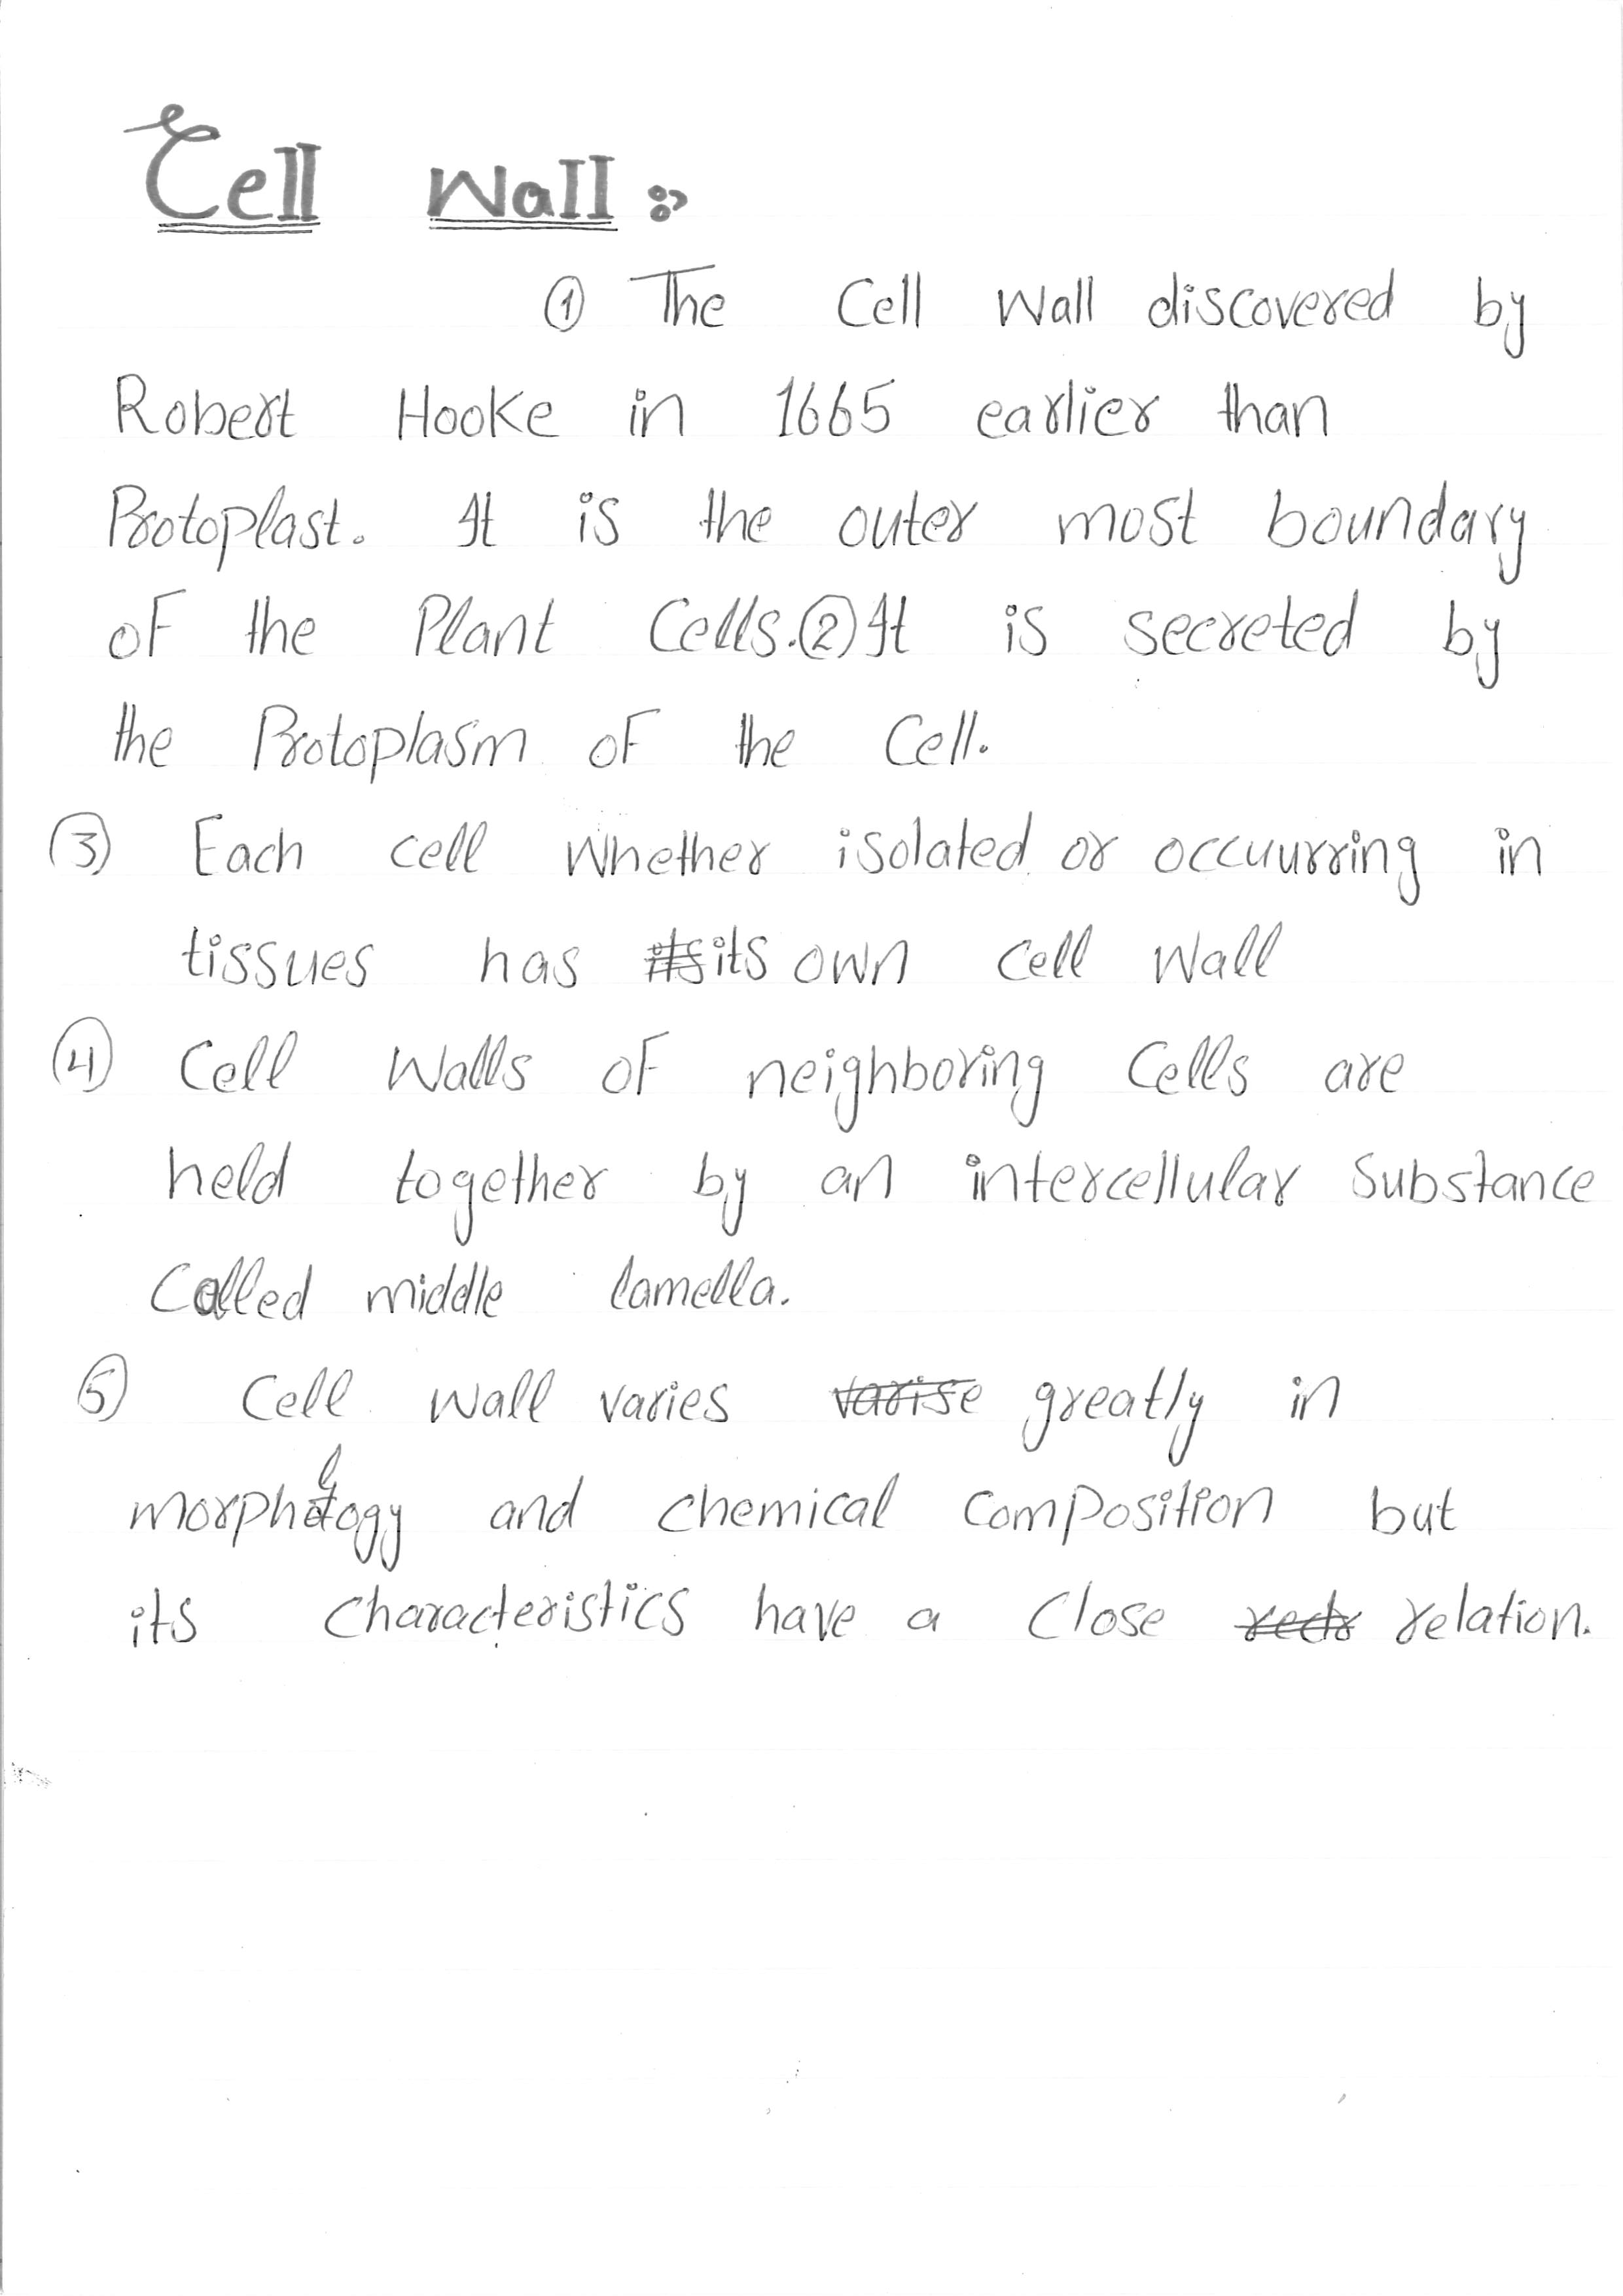 Cell Wall :-
① The Cell Wall discovered by
Robert Hooke in 1665 earlier than
Protoplast. It is the outer most boundary
of the Plant Cells. ② It is secreted by
the Protoplasm of the Cell.
③ Each cell whether isolated or occuurring in
tissues has its own cell wall
④ Cell Walls of neighboring Cells are
held together by an intercellular Substance
Called middle lamella.
⑤ Cell wall varies varise greatly in
morphology and chemical composition but
its characteristics have a close relation.